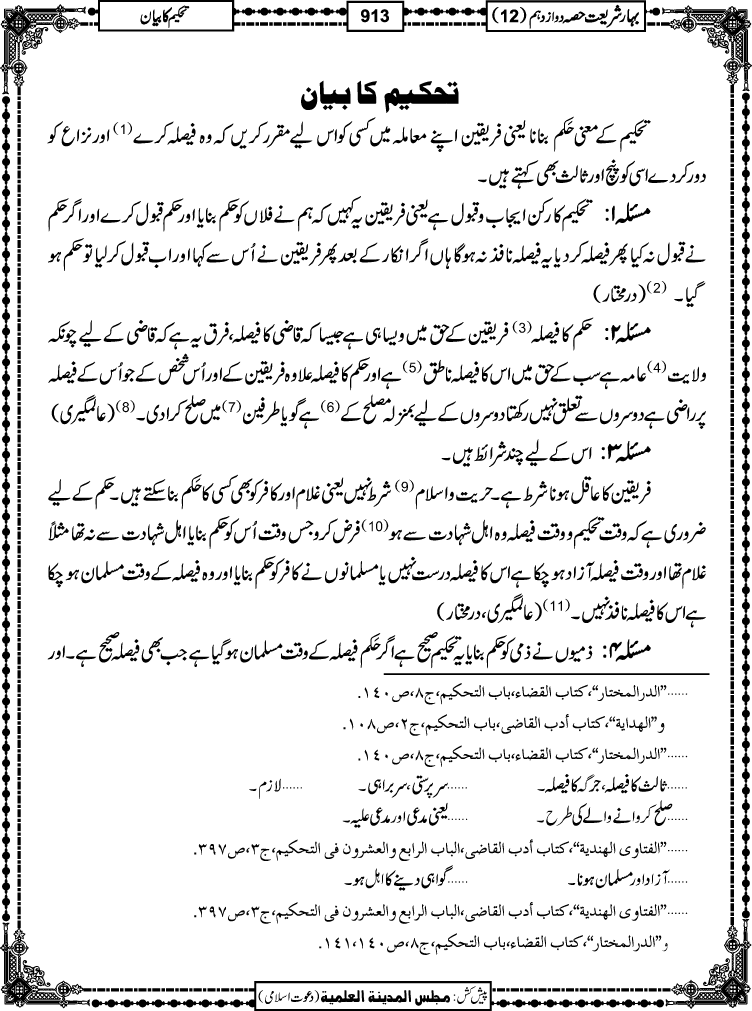 بہارِ شریعت حصہ دوازدہم (12)
913
تحکیم کا بیان
تحکیم کا بیان
تحکیم کے معنی حَکَم بنانا یعنی فریقین اپنے معاملہ میں کسی کو اس لیے مقرر کریں کہ وہ فیصلہ کرے(1) اور نزاع کو
دور کردے اسی کو پنچ اور ثالث بھی کہتے ہیں۔
مسئلہ ۱: تحکیم کا رکن ایجاب وقبول ہے یعنی فریقین یہ کہیں کہ ہم نے فلاں کو حکم بنایا اور حکم قبول کرے اور اگر حکم
نے قبول نہ کیا پھر فیصلہ کردیا یہ فیصلہ نافذ نہ ہوگا ہاں اگر انکار کے بعد پھر فریقین نے اُس سے کہا اور اب قبول کرلیا تو حکم ہو
گیا۔ (2) (درمختار)
مسئلہ ۲: حکم کا فیصلہ(3) فریقین کے حق میں ویسا ہی ہے جیسا کہ قاضی کا فیصلہ، فرق یہ ہے کہ قاضی کے لیے چونکہ
ولایت(4) عامہ ہے سب کے حق میں اس کا فیصلہ ناطق(5) ہے اور حکم کا فیصلہ علاوہ فریقین کے اور اُس شخص کے جو اُس کے فیصلہ
پر راضی ہے دوسروں سے تعلق نہیں رکھتا دوسروں کے لیے بمنزلہ مصلح کے(6) ہے گویا طرفین(7) میں صلح کرادی۔(8) (عالمگیری)
مسئلہ ۳: اس کے لیے چند شرائط ہیں۔
فریقین کا عاقل ہونا شرط ہے۔ حریت و اسلام(9) شرط نہیں یعنی غلام اور کافر کو بھی کسی کا حَکَم بنا سکتے ہیں۔ حکم کے لیے
ضروری ہے کہ وقت تحکیم و وقت فیصلہ وہ اہلِ شہادت سے ہو(10) فرض کرو جس وقت اُس کو حکم بنایا اہل شہادت سے نہ تھا مثلاً
غلام تھا اور وقت فیصلہ آزاد ہو چکا ہے اس کا فیصلہ درست نہیں یا مسلمانوں نے کافر کو حکم بنایا اور وہ فیصلہ کے وقت مسلمان ہو چکا
ہے اس کا فیصلہ نافذ نہیں۔(11) (عالمگیری، درمختار)
مسئلہ ۴: ذمیوں نے ذمی کو حکم بنایا یہ تحکیم صحیح ہے اگر حَکَم فیصلہ کے وقت مسلمان ہوگیا ہے جب بھی فیصلہ صحیح ہے۔ اور
......”الدرالمختار“، کتاب القضاء، باب التحکیم، ج۸، ص۱۴۰.
و ”الهداية“، کتاب أدب القاضی، باب التحکیم، ج۲، ص۱۰۸.
......”الدرالمختار“، کتاب القضاء، باب التحکیم، ج۸، ص۱۴۰.
......ثالث کا فیصلہ، جرگہ کا فیصلہ۔ ......سرپرستی، سربراہی۔ ......لازم۔
......صلح کروانے والے کی طرح۔ ......یعنی مدعی اور مدعی علیہ۔
......”الفتاوی الهندية“، کتاب أدب القاضی، الباب الرابع والعشرون فی التحکیم، ج۳، ص۳۹۷.
......آزاد اور مسلمان ہونا۔ ......گواہی دینے کا اہل ہو۔
......”الفتاوی الهندية“، کتاب أدب القاضی، الباب الرابع والعشرون فی التحکیم، ج۳، ص۳۹۷.
و ”الدرالمختار“، کتاب القضاء، باب التحکیم، ج۸، ص۱۴۰، ۱۴۱.
پیش کش: مجلس المدينة العلمية (دعوتِ اسلامی)